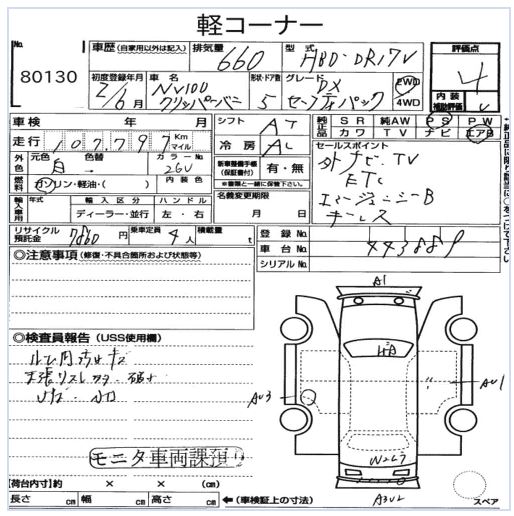 軽コーナー
No.
80130
車歴 (自家用以外は記入)
排気量 660
型式 HBD-DR17V
評価点
4
初度登録年月
2/6月
車名 NV100
クリッパーバン
形状・ドア数 5
グレード DX
セーフティパック
2WD
4WD
内装
補助評価
車検 年 月
シフト AT
純正品 SR 純AW PS PW
純正品 カワ TV ナビ エアB
走行 107,797 Km
マイル
冷房 AC
セールスポイント
外ナビ・TV
ETC
エマージェンシーB
キーレス
純正品に限り装備に○をつけて下さい
外色 元色 色替 カラーNo.
白
26U
新車整備手帳
(保証書付) 有・無
※書類と一緒に保管下さい
燃料 ガソリン・軽油・( ) 内装色
名義変更期限
月 日
輸入車用 年式 輸入区分 ハンドル
ディーラー・並行 左・右
リサイクル
預託金 7860円
乗車定員 4人
積載量 t
登録No.
車台No. 443889
シリアルNo.
◎注意事項 (修復・不具合箇所および状態等)
◎検査員報告 (USS使用欄)
モニタ車両課預り
A1
AU3
AU1
A3U2
スペア
(荷台内寸)約 × × (cm)
長さ cm 幅 cm 高さ cm
←(車検証上の寸法)